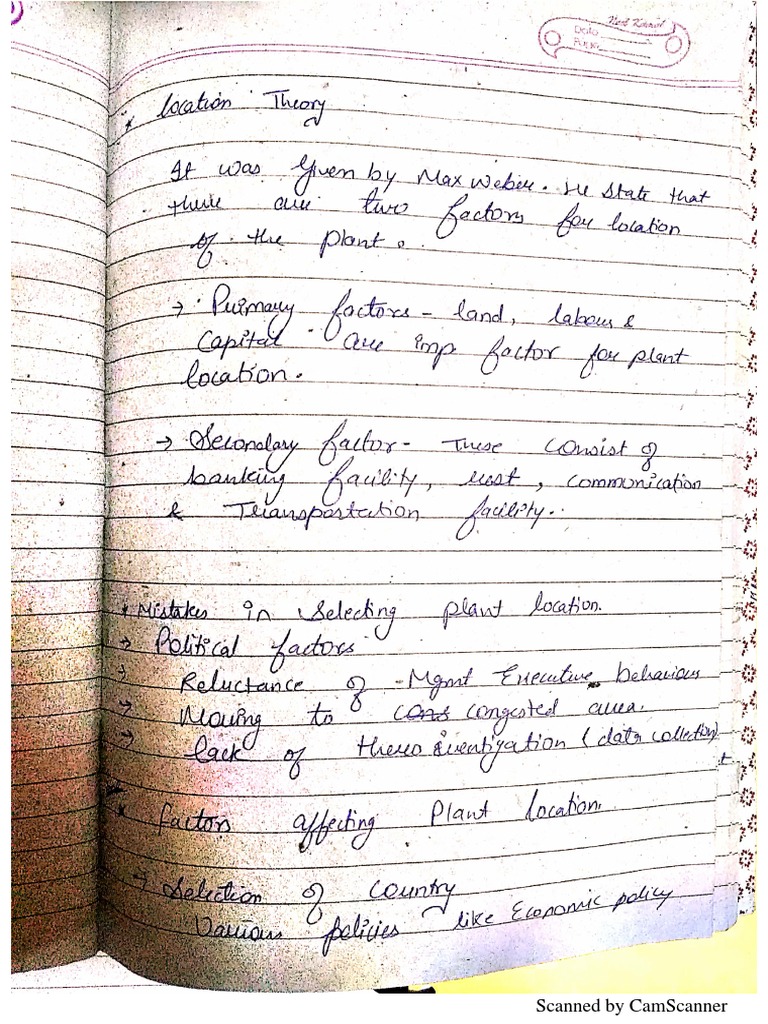 Neel Kamal
Date
Page
* Location Theory
It was Given by Max weber. He state that
there are two factors for location
of the plant.
→ Primary factors - land, labour &
Capital are imp factor for plant
location.
→ Secondary factor - These consist of
banking facility, cost, communication
& Transportation facility.
* Mistakes in Selecting plant location.
→ Political factors
→ Reluctance of Mgmt Executive behaviour
→ Moving to congested area.
→ lack of (data collection)
* factors affecting Plant Location.
→ Selection of Country
Various policies like Economic policy
Scanned by CamScanner